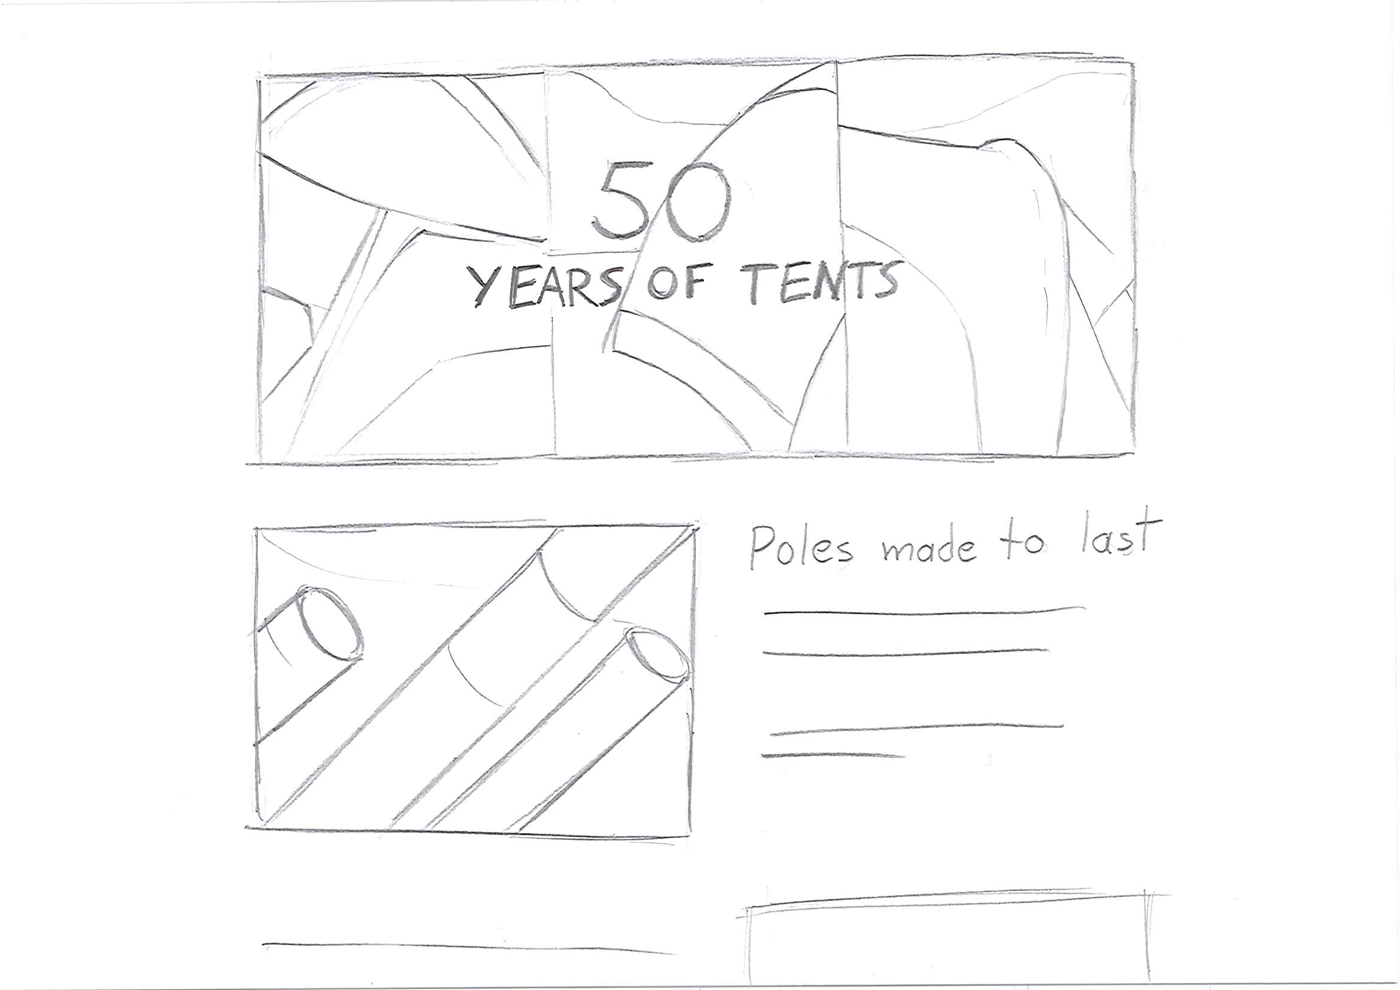 50
YEARS OF TENTS
Poles made to last